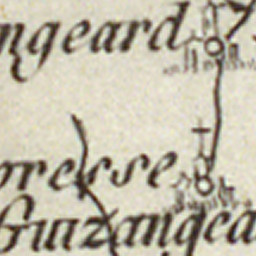 ngeard
presse
Guizangea